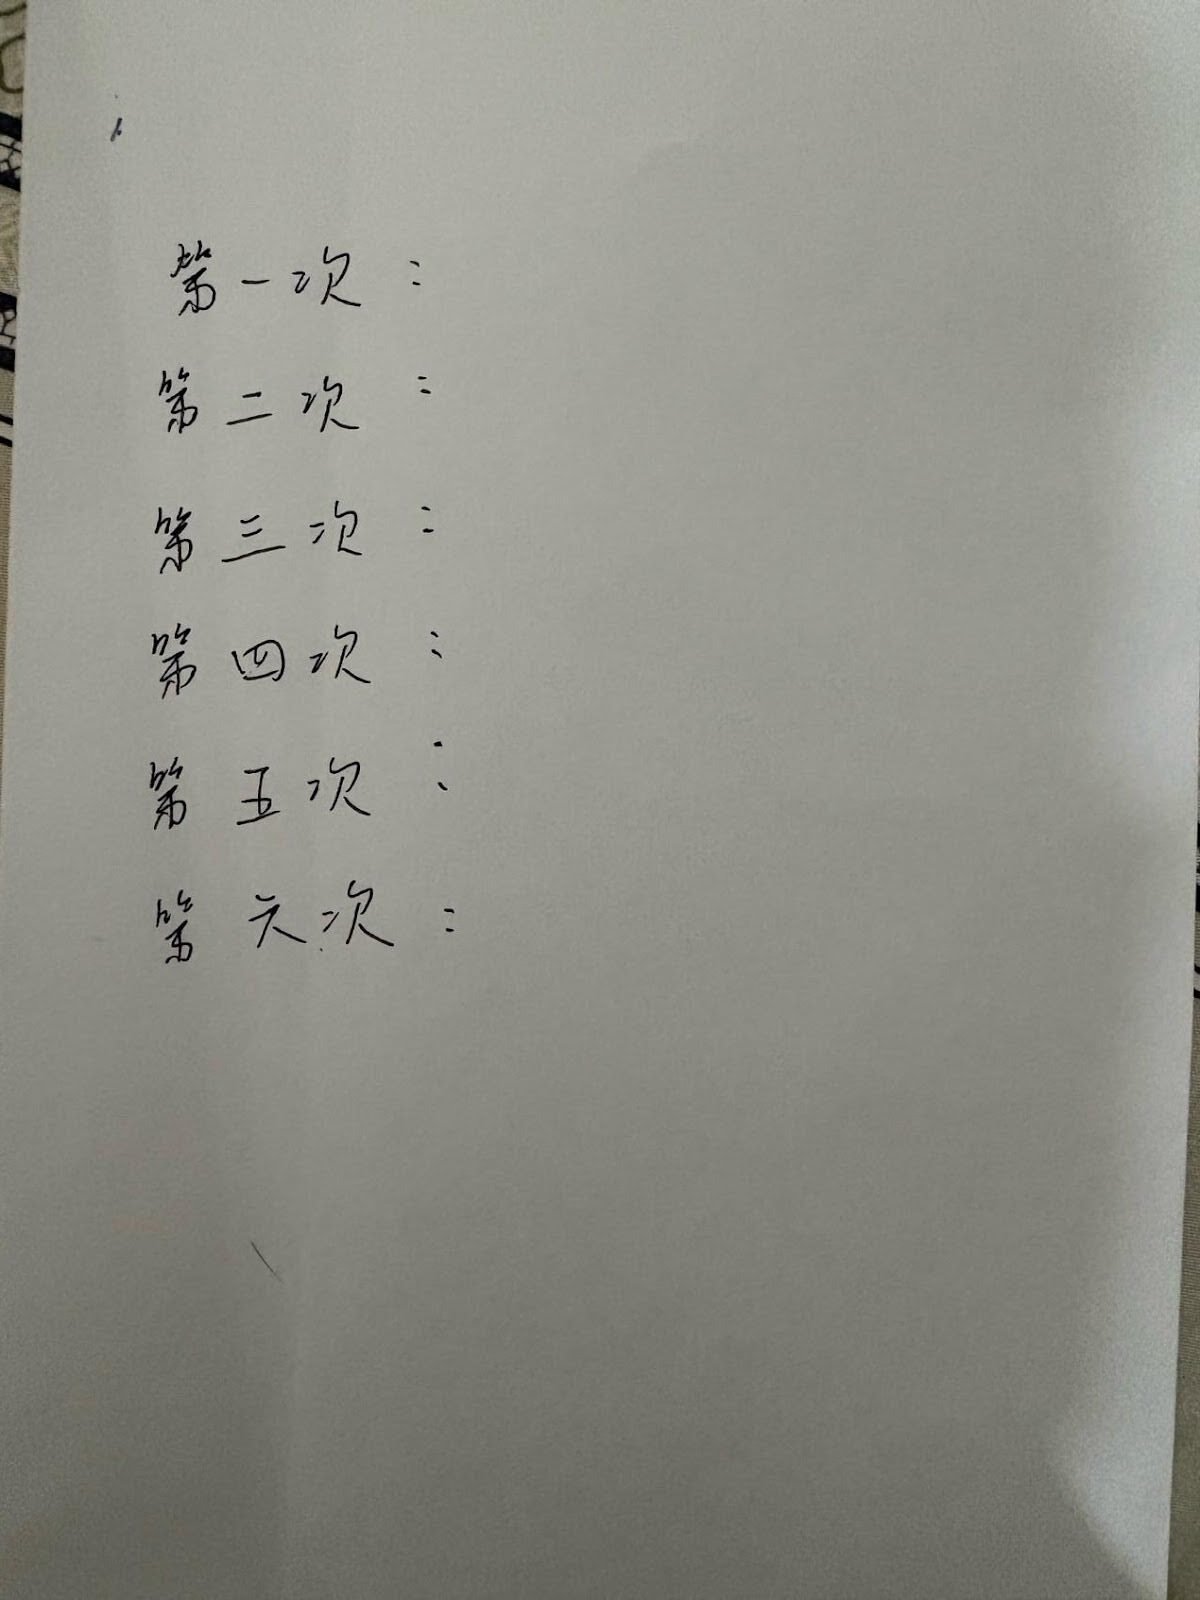 第一次：
第二次：
第三次：
第四次：
第五次：
第六次：